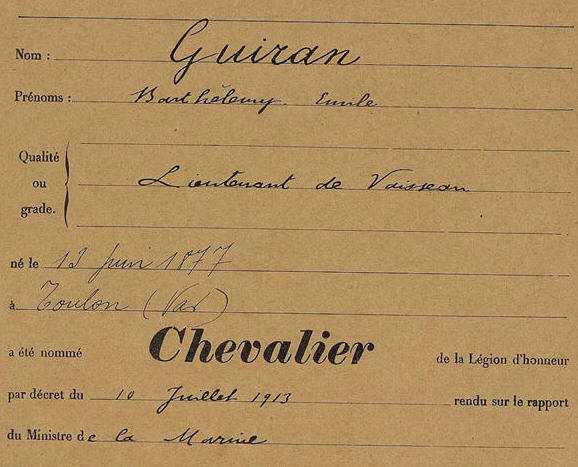 Nom : Guiran
Prénoms : Barthélemy Emile
Qualité
ou
grade.
Lieutenant de Vaisseau
né le 13 juin 1877
à Toulon (Var)
a été nommé Chevalier de la Légion d'honneur
par décret du 10 Juillet 1913 rendu sur le rapport
du Ministre de la Marine